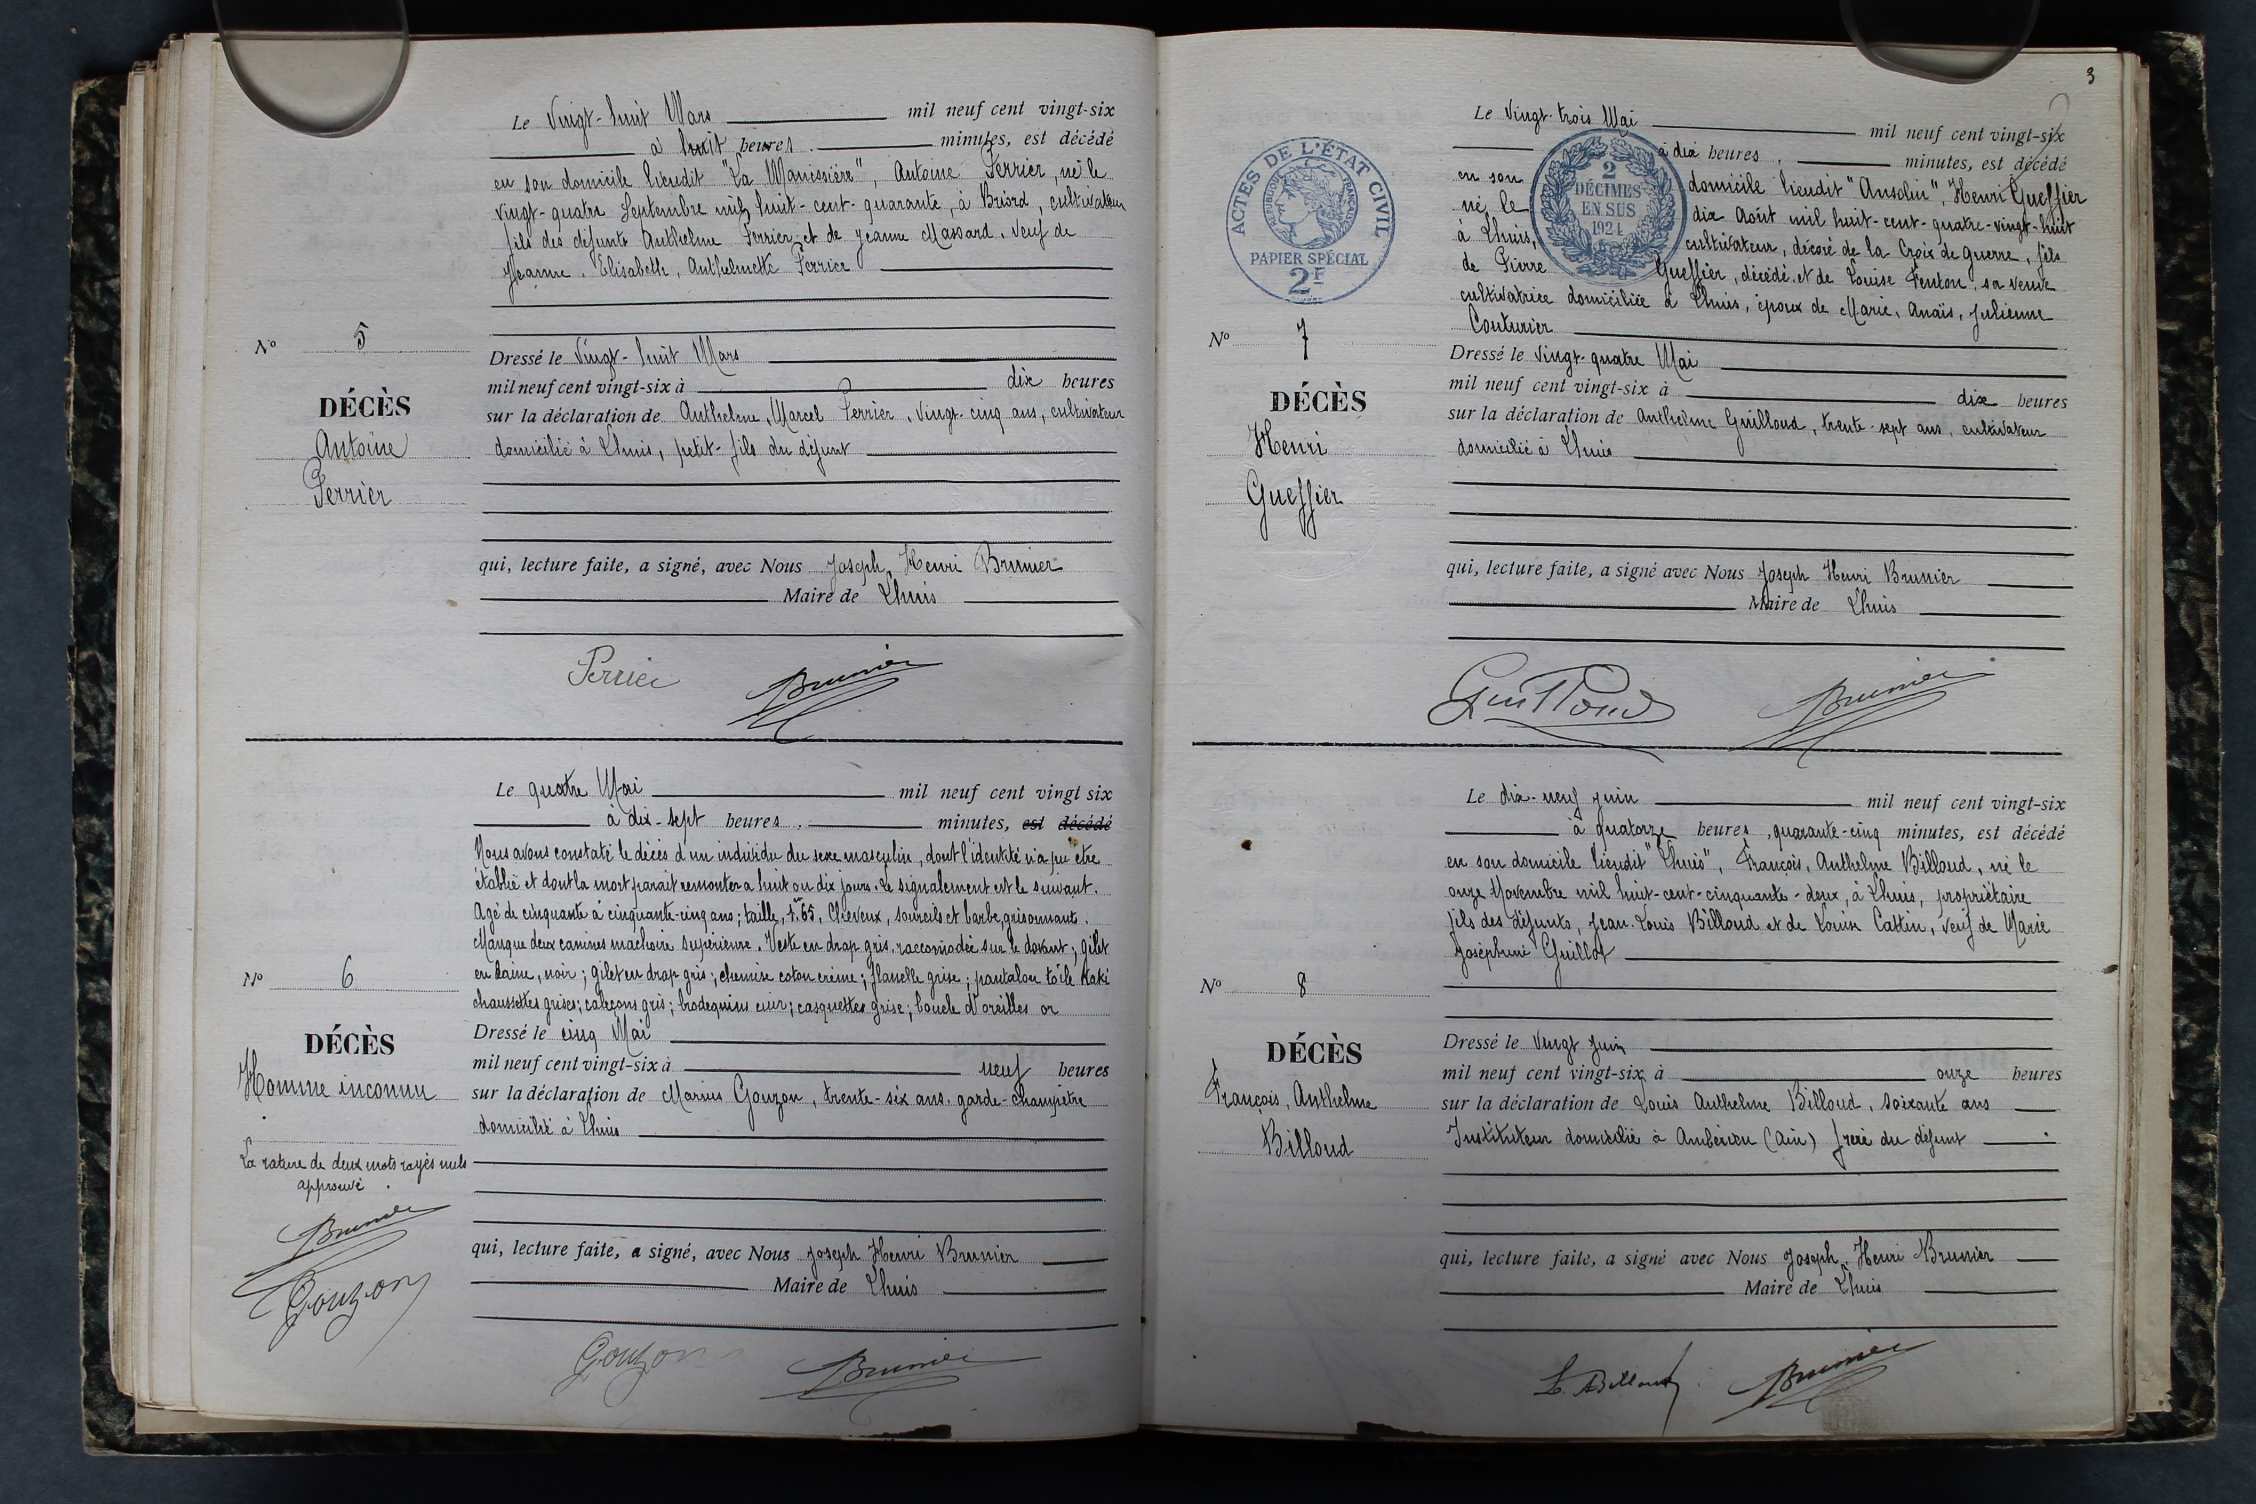 Le Vingt-huit Mars mil neuf cent vingt-six
à huit heures, minutes, est décédé
en son domicile lieudit "La Manissière", Antoine Perrier, né le
vingt-quatre Septembre mil huit-cent-quarante, à Briord, cultivateur
fils des défunts Anthelme Perrier et de Jeanne Massard. Veuf de
Jeanne, Elisabeth, Anthelmette Perrier
No 5
DÉCÈS
Antoine
Perrier
Dressé le Vingt-huit Mars
mil neuf cent vingt-six à dix heures
sur la déclaration de Anthelme, Marcel Perrier, vingt-cinq ans, cultivateur
domicilié à Lhuis, petit-fils du défunt
qui, lecture faite, a signé, avec Nous Joseph, Henri Brunier
Maire de Lhuis
Perrier Brunier
Le quatre Mai mil neuf cent vingt six
à dix-sept heures, minutes, est décédé
Nous avons constaté le décès d'un individu du sexe masculin, dont l'identité n'a pu être
établie et dont la mort parait remonter a huit ou dix jours. Le signalement est le suivant.
Agé de cinquante à cinquante-cinq ans; taille, 1m65, Cheveux, sourcils et barbe, grisonnants.
Manque deux canines machoire supérieure. Veste en drap gris, raccomodée sur le devant; gilet
en laine, noir; gilet en drap gris; chemise coton crème; flanelle grise; pantalon toile Kaki
chaussettes grises; caleçons gris; brodequins cuir; casquettes grise; boucle d'oreilles or
No 6
DÉCÈS
Homme inconnu
La rature de deux mots rayés nuls
approuvé.
Brunier
Gouzon
Dressé le cinq Mai
mil neuf cent vingt-six à neuf heures
sur la déclaration de Marius Gouzon, trente-six ans. garde-champêtre
domicilié à Lhuis
qui, lecture faite, a signé, avec Nous Joseph Henri Brunier
Maire de Lhuis
Gouzon Brunier
3
ACTES DE L'ÉTAT CIVIL
RÉPUBLIQUE FRANÇAISE
PAPIER SPÉCIAL
2F
2
DÉCIMES
EN SUS
1924
Le Vingt-trois Mai mil neuf cent vingt-six
à dix heures, minutes, est décédé
en son domicile lieudit "Ansolin", Henri Gueffier
né le dix Août mil huit-cent-quatre-vingt-huit
à Lhuis, cultivateur, décoré de la Croix de guerre, fils
de Pierre Gueffier, décédé, et de Louise Fenton, sa veuve
cultivatrice domiciliée à Lhuis, époux de Marie, Anaïs, Julienne
Couturier
No 7
DÉCÈS
Henri
Gueffier
Dressé le Vingt-quatre Mai
mil neuf cent vingt-six à dix heures
sur la déclaration de Anthelme Guilloud, trente-sept ans, cultivateur
domicilié à Lhuis
qui, lecture faite, a signé avec Nous Joseph Henri Brunier
Maire de Lhuis
Guilloud Brunier
Le dix-neuf juin mil neuf cent vingt-six
à quatorze heures, quarante-cinq minutes, est décédé
en son domicile lieudit "Lhuis", François, Anthelme Billoud, né le
onze Novembre mil huit-cent-cinquante-deux, à Lhuis, propriétaire
fils des défunts, Jean-Louis Billoud et de Louise Cattin, veuf de Marie
Joséphine Guillot
No 8
DÉCÈS
François, Anthelme
Billoud
Dressé le Vingt Juin
mil neuf cent vingt-six à onze heures
sur la déclaration de Louis Anthelme Billoud, soixante ans
Instituteur domicilié à Ambérieu (Ain) frère du défunt
qui, lecture faite, a signé avec Nous Joseph, Henri Brunier
Maire de Lhuis
L. Billoud Brunier